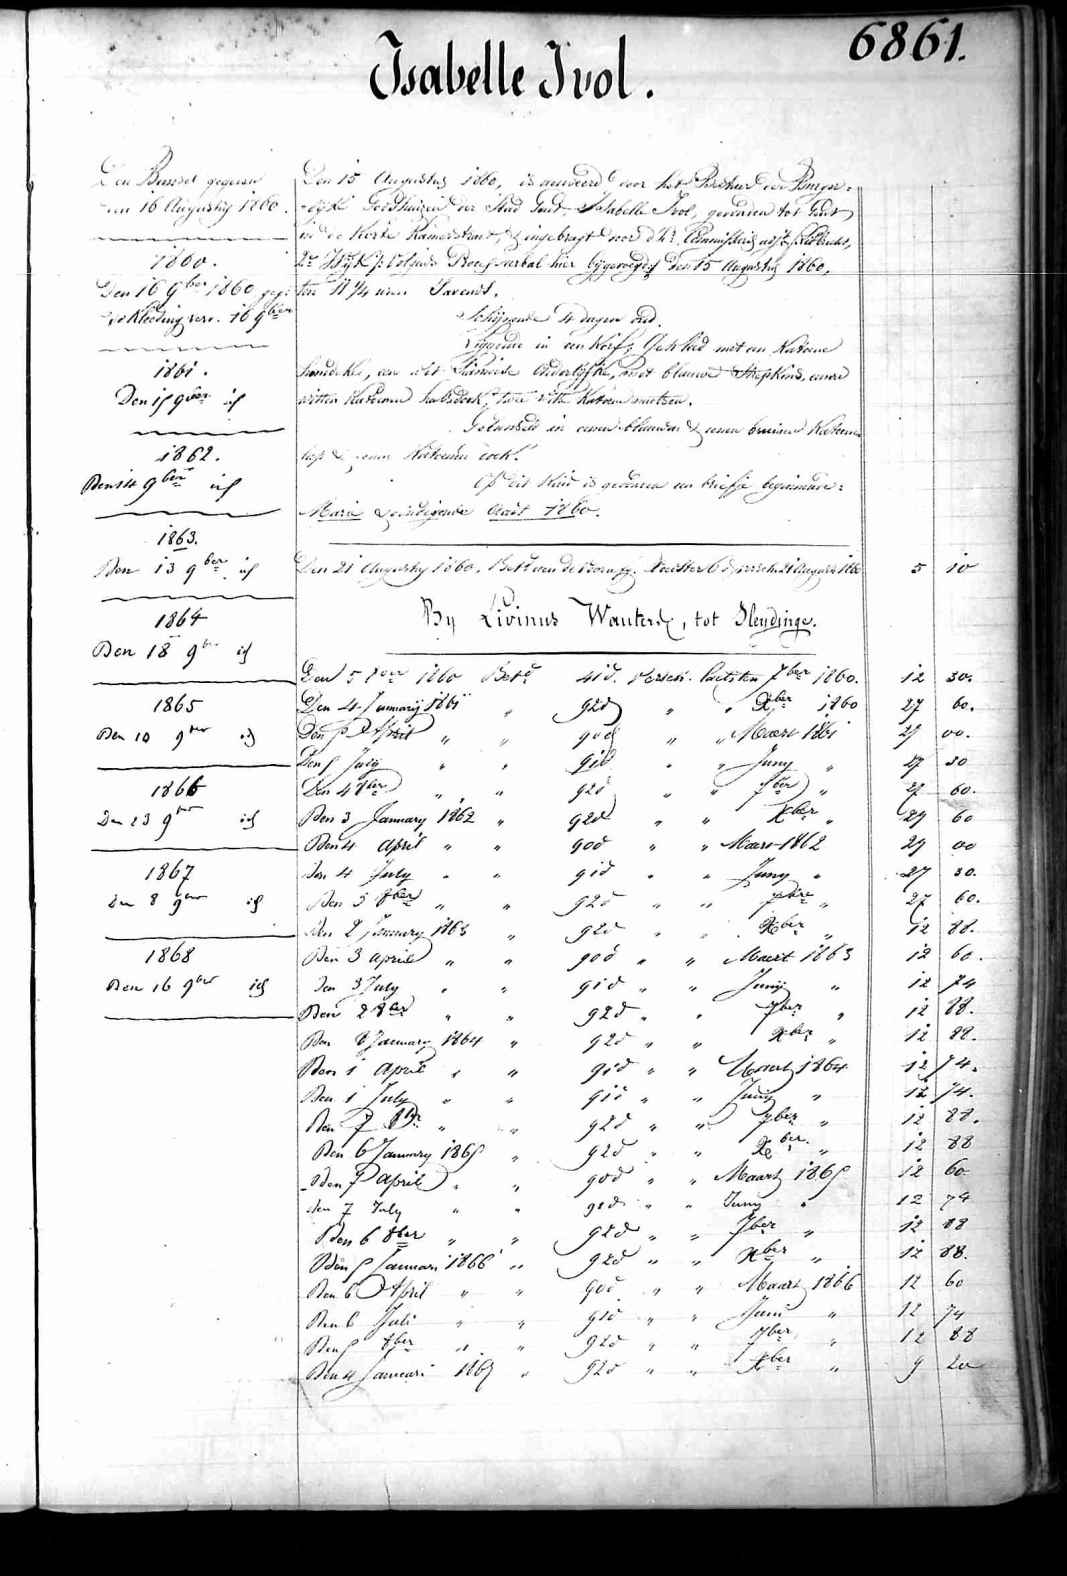 6861.
Isabelle Ivol.
Den Bundel gegeven
den 16 Augusty 1860.
1860.
Den 16 9ber 1860 geg:
de Kleeding verv. 16 9ber
1861.
Den 15 9ber id
1862.
Den 14 9ber id
1863.
Den 13 9ber id
1864
Den 18 9ber id
1865
Den 10 9ber id
1866
Den 23 9ber id
1867
Den 8 9ber id
1868
Den 16 9ber id
Den 15 Augustus 1860, is aenveerd door het Bestuer der Burger-
-lyke Godshuizen der Stad Gent, Isabelle Ivol, gevonden tot Gent,
in de Korte Ramerstraet, & ingebragt door d'hr Commissaris
2e Wyk, volgens Proces verbal hier bygevoegd den 15 Augusty 1860,
ten 11 1/4 uren savends.
Schynende 4 dagen oud.
Liggende in een korf; Gekleed met een Katoene
hemdeke, een wit blauwe
witten Katoenen halsdoek, twee witte Katoene mutsen.
Gebusseld in eenen blauwen & eenen bruinen Katoenen
lap & eenen Katoenen rock.
Op dit Kind is gevonden een briefje beginnende:
Marie & eindigende Août 1860.
Den 21 Augusty 1860. Bet. van de Voorzg. Minster 6 d. 21 Augusty 1860 5 10
By Livinus Wauters, tot Sleydinge.
Den 5 8ber 1860 Betd 41d. verschn. laetsten 7ber 1860. 12 30.
Den 4 January 1861 " 92d " " Xber 1860 27 60.
Den 5 April " " 90d " " Maert 1861 27 00.
Den 5 July " " 91d " " Juny " 27 30
Den 4 8ber " " 92d " " 7ber " 27 60.
Den 3 January 1862 " 92d " " Xber " 27 60
Den 4 April " " 90d " " Maert 1862 27 00
Den 4 July " " 91d " " Juny " 27 30.
Den 3 8ber " " 92d " " 7ber " 27 60.
Den 2 January 1863 " 92d " " Xber " 12 88.
Den 3 April " " 90d " " Maert 1863 12 60.
Den 3 July " " 91d " " Juny " 12 74
Den 2 8ber " " 92d " " 7ber " 12 88.
Den 8 January 1864 " 92d " " Xber " 12 88.
Den 1 April " " 91d " " Maert 1864 12 74.
Den 1 July " " 91d " " Juny " 12 74.
Den 7 8br " " 92d " " 7ber " 12 88.
Den 6 January 1865 " 92d " " Xber. " 12 88
Den 7 April " " 90d " " Maart 1865 12 60
den 7 July " " 91d " " Juny " 12 74
Den 6 8ber " " 92d " " 7ber " 12 88
Den 5 Januari 1866 " 92d " " Xber " 12 88.
Den 6 April " " 90d " " Maart 1866 12 60
Den 6 Juli " " 91d " " Juni " 12 74
Den 5 8ber " " 92d " " 7ber " 12 88
Den 4 Januari 1867 " 92d " " Xber " 9 20